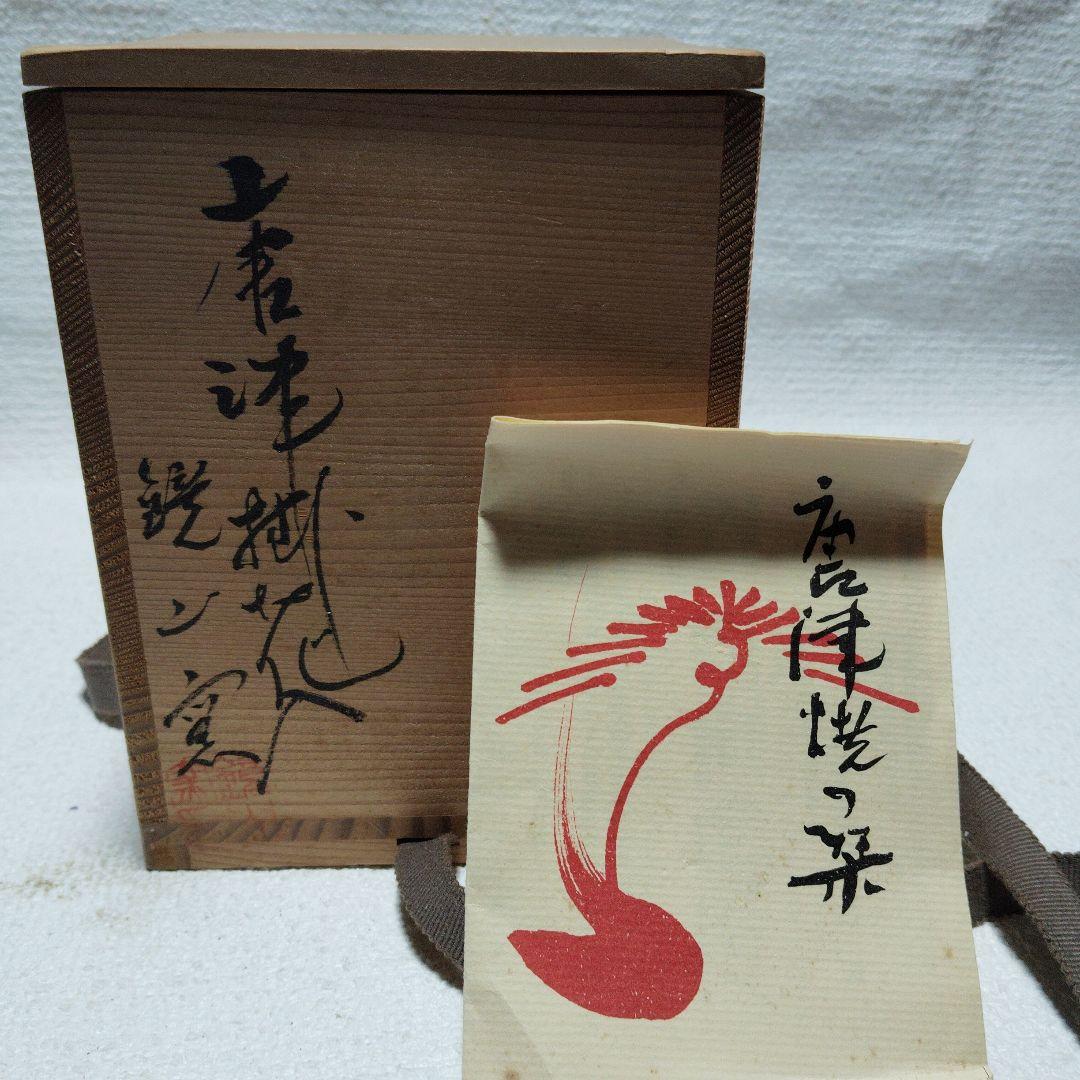 上唐津掛花入
鏡山窯
唐津焼の栞